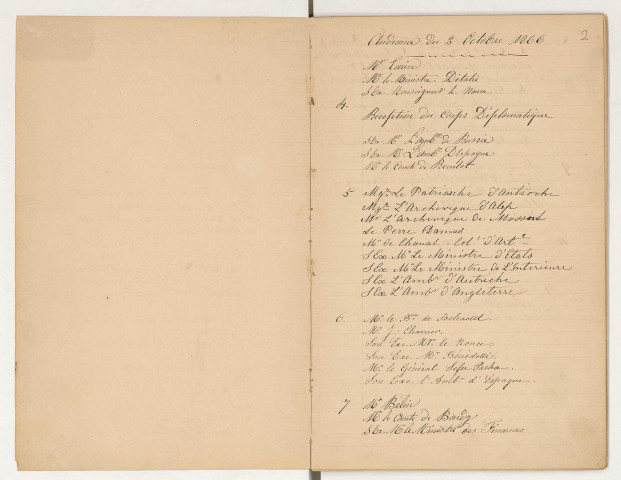 Audience du 3 Octobre 1866
2
Mr
Mr le Ministre D'italie
S Ex Monseigneur le Nonce
4. Réception du Corps Diplomatique
S Ex Mr L'amb. de Russie
S Ex Mr L'amb. D'Espagne
Mr le Comte de
5 Mgr Le Patriarche d'Antioche
Mgr L'Archevêque d'Alep
Mr L'Archevêque de Mossoul
Le Perre Damas
Mr de Chanal Col. d'Art.
S Ex Mr Le Ministre d'Etats
S Ex Mr Le Ministre de L'Interieure
S Ex L'Amb. d'Autriche
S Ex L'Amb. d'Angleterre
6. Mr le de
Mr J.
Son Exe Mr. le Nonce.
Son Exe Mr. Bénédetti.
Mr. le Général Sefer Pacha.
Son Exe l'Amb. d'Espagne.
7 Mr Belin
Mr le Comte de Bondy
S Ex Mr le Ministre des Finances